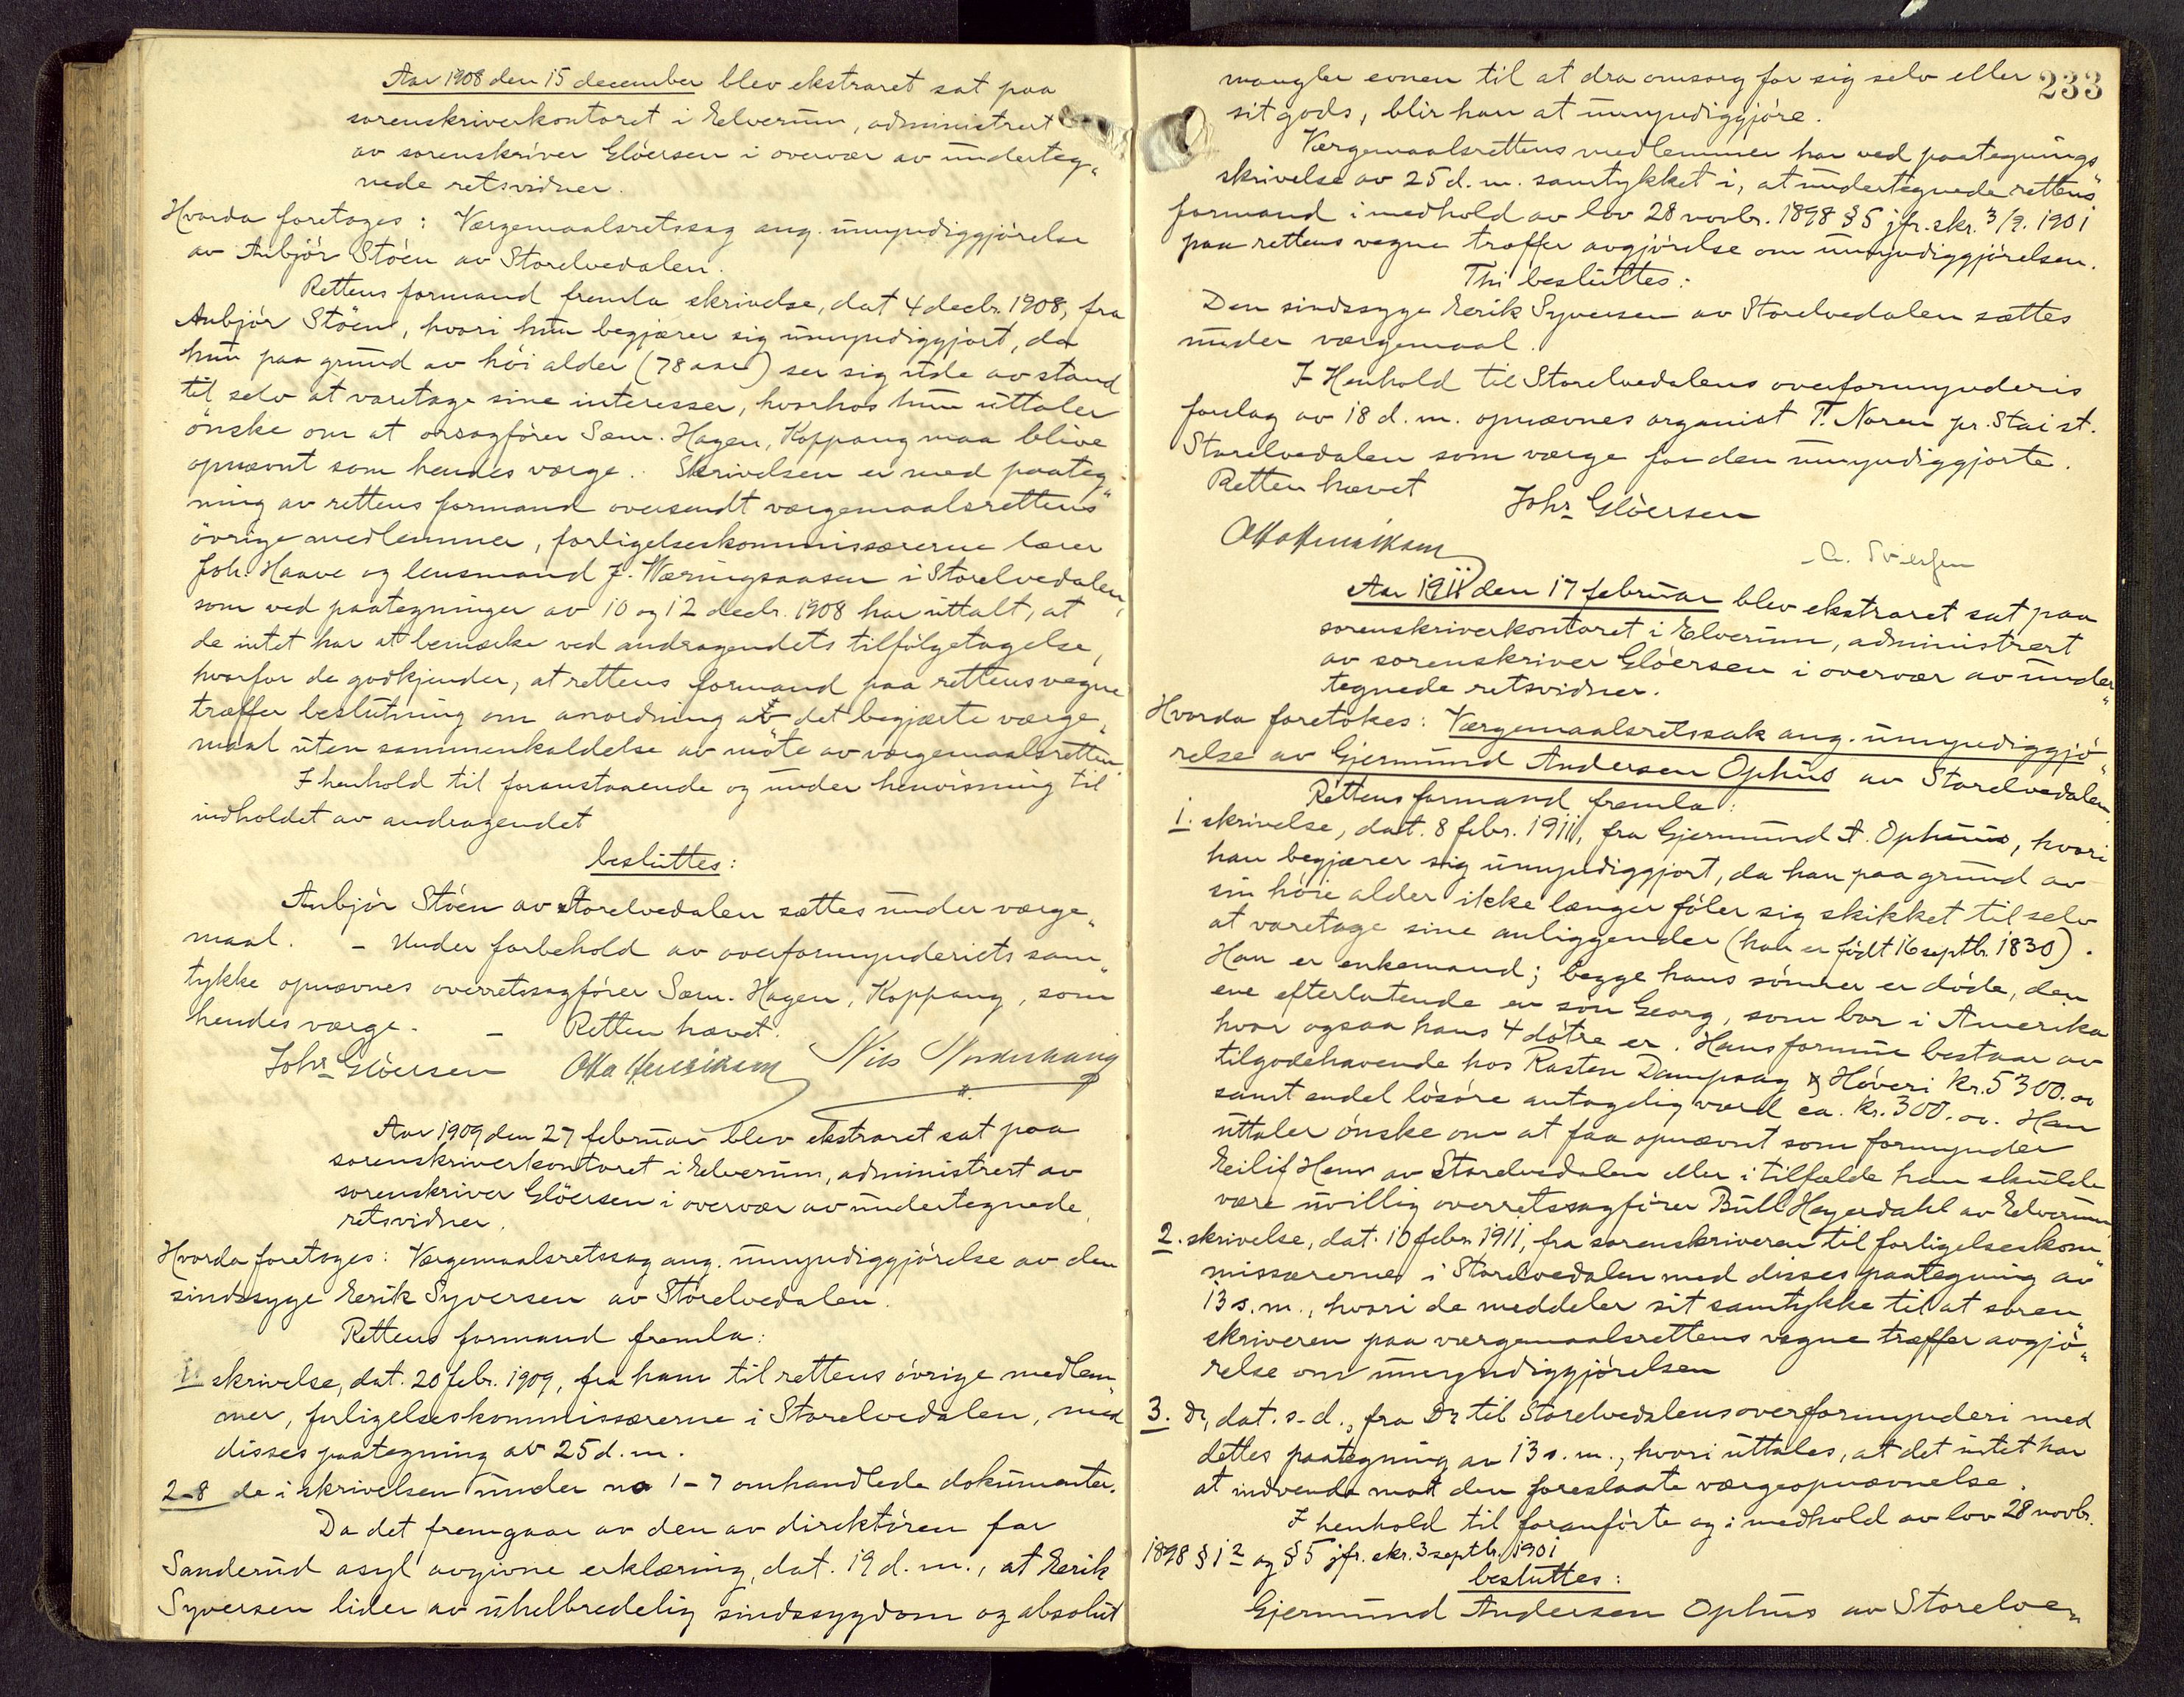 Aar 1908 den 15 december blev ekstraret sat paa
sorenskriverkontoret i Elverum, administrert
av sorenskriver Glöersen i overvær av underteg„
nede retsvidner.
Hvorda foretages: Værgemaalsretssag ang. umyndiggjörelse
av Anbjör Stöen av Storelvedalen.
Rettens formand fremla skrivelse, dat 4 decbr. 1908, fra
Anbjör Stöen, hvori hun begjærer sig umyndiggjort, da
hun paa grund av höi alder (78 aar) ser sig ute av stand
til selv at varetage sine interesser, hvorhos hun uttaler
önske om at orsagförer Sæm. Hagen, Koppang maa blive
opnævnt som hendes værge. Skrivelsen er med paateg„
ning av rettens formand oversendt værgemaalsrettens
övrige medlemmer, forligelseskommissærerne lærer
Joh. Haave og lensmand J. Væringsaasen i Storelvedalen,
som ved paategninger av 10 og 12 decbr. 1908 har uttalt, at
de intet har at bemærke ved andragendets tilfölgetagelse,
hvorfor de godkjender, at rettens formand paa rettens vegne
træffer beslutning om anordning av det begjærte værge„
maal uten sammenkaldelse av möte av værgemaalsretten.
I henhold til foranstaaende og under henvisning til
indholdet av andragendet
besluttes:
Anbjör Stöen av Storelvedalen sættes under værge„
maal. - Under forbehold av overformynderiets sam„
tykke opnævnes overretssagförer Sæm. Hagen, Koppang, som
hendes værge. - Retten hævet.
Johs Glöersen Otto Henriksen Nils
Aar 1909 den 27 februar blev ekstraret sat paa
sorenskriverkontoret i Elverum, administrert av
sorenskriver Glöersen i overvær av undertegnede
retsvidner.
Hvorda foretages: Værgemaalsretssag ang. umyndiggjörelse av den
sindssyge Eerik Syversen av Storelvedalen.
Rettens formand fremla:
1. skrivelse, dat. 20 febr. 1909, fra ham til rettens övrige medlem„
mer, forligelseskommissærerne i Storelvedalen, med
disses paategning av 25 d. m.
2-8 de i skrivelsen under no 1-7 omhandlede dokumenter.
Da det fremgaar av den av direktören for
Sanderud asyl avgivne erklæring, dat. 19 d. m., at Eerik
Syversen lider av uhelbredelig sindssygdom og absolut
233
mangler evnen til at dra omsorg for sig selv eller
sit gods, blir han at umyndiggjöre.
Værgemaalsrettens medlemmer har ved paategnings„
skrivelse av 25 d. m. samtykket i, at undertegnede rettens
formand i medhold av lov 28 novbr. 1898 § 5 jfr. skr. 3/9. 1901
paa rettens vegne træffer avgjörelse om umyndiggjörelsen.
Thi besluttes:
Den sindssyge Eerik Syversen av Storelvedalen sættes
under værgemaal.
I Henhold til Storelvedalens overformynderis
forslag av 18 d. m. opnævnes organist T. Noren pr. Stai st.
Storelvedalen som værge for den umyndiggjorte.
Retten hævet
Johs Glöersen
Otto Henriksen
Aar 1911 den 17 februar blev ekstraret sat paa
sorenskriverkontoret i Elverum, administrert
av sorenskriver Glöersen i overvær av under„
tegnede retsvidner.
Hvorda foretokes: Værgemaalsretssak ang. umyndiggjö„
relse av Gjermund Andersen Ophus av Storelvedalen.
Rettens formand fremla:
1. skrivelse, dat. 8 febr. 1911, fra Gjermund A. Ophus, hvori
han begjærer sig umyndiggjort, da han paa grund av
sin höie alder ikke længer föler sig skikket til selv
at varetage sine anliggender (han er födt 16 septbr. 1830).
Han er enkemand; begge hans sönner er döde, den
ene efterlatende en sön Georg, som bor i Amerika
hvor ogsaa hans 4 dötre er. Hans formue bestaar av
tilgodehavende hos Rasten Dampsag & Höveri kr. 5300.00
samt endel lösöre antagelig værd ca. kr. 300.00. Han
uttaler önske om at faa opnævnt som formynder
Eilif Hem av Storelvedalen eller i tilfælde han skulde
være uvillig overretssagförer Bull Heyerdahl av Elverum
2. skrivelse, dat. 10 febr. 1911, fra sorenskriveren til forligelseskom„
missærerne i Storelvedalen med disses paategning av
13 s. m., hvori de meddeler sit samtykke til at soren„
skriveren paa værgemaalsrettens vegne træffer avgjö„
relse om umyndiggjörelsen
3. Do, dat. s. d., fra Do til Storelvedalens overformynderi med
dettes paategning av 13 s. m., hvori uttales, at det intet har
at indvende mot den foreslaate værgeopnævnelse.
I henhold til foranförte og i medhold av lov 28 novbr.
1898 § 1 2 og § 5 jfr. skr. 3 septbr. 1901
besluttes:
Gjermund Andersen Ophus av Storelve„